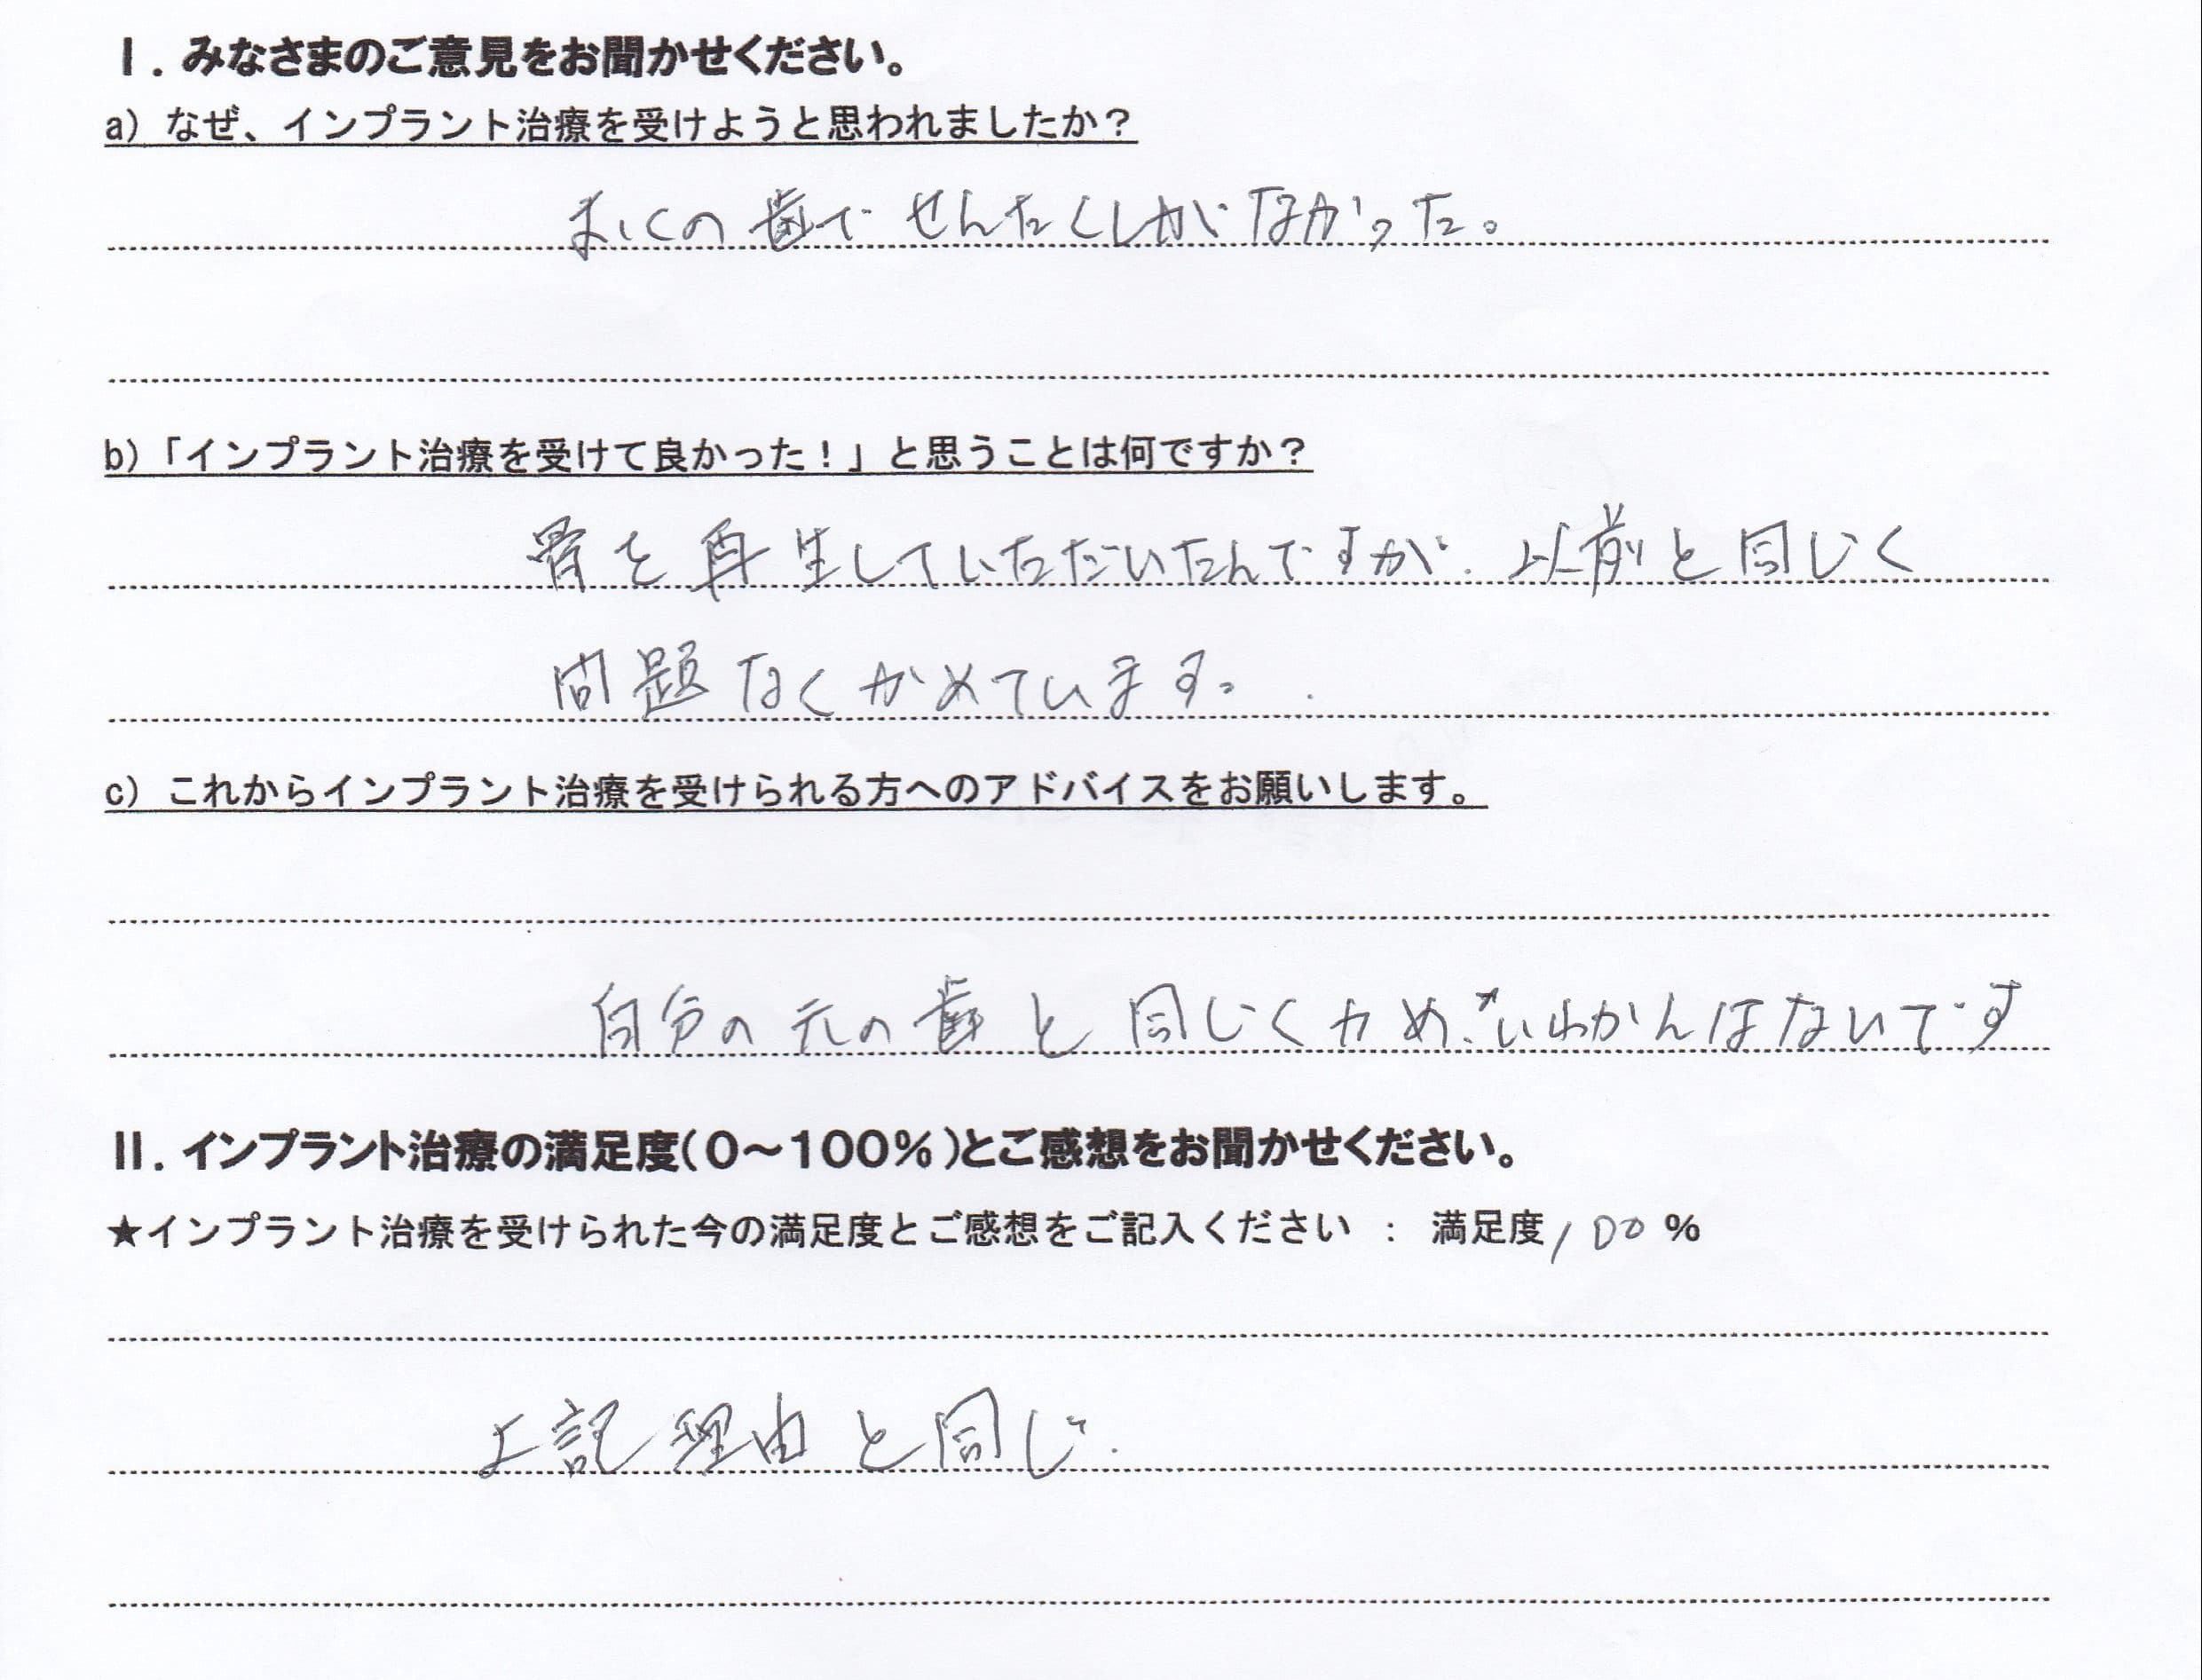 Ⅰ. みなさまのご意見をお聞かせください。
a) なぜ、インプラント治療を受けようと思われましたか？
歯で せんたくしがなかった。
b)「インプラント治療を受けて良かった！」と思うことは何ですか？
骨を再生していただいたんですが、以前と同じく
問題なくかめています。
c) これからインプラント治療を受けられる方へのアドバイスをお願いします。
自分の元の歯と同じくカめ、いわかんはないです
Ⅱ. インプラント治療の満足度(0～100%)とご感想をお聞かせください。
★インプラント治療を受けられた今の満足度とご感想をご記入ください : 満足度 100 %
上記理由と同じ.